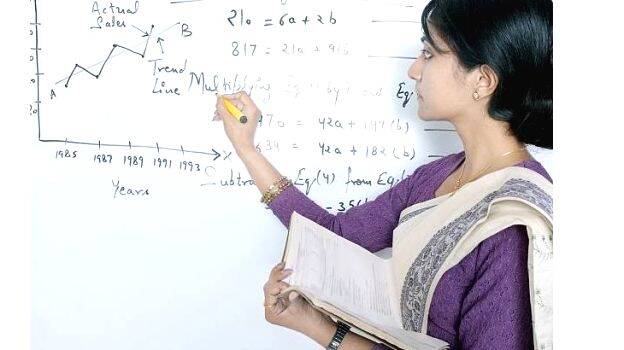 Actual
Sales
B
Trend
Line
A
1985 1987 1989 1991 1993 X
Years
210 = 6a + 2b
817 = 21a + 91b
Multiplying Eq by Eq
70 = 42a + 147(b)
634 = 42a + 182(b)
Subtra Eq(4) from Eq(
- 35(